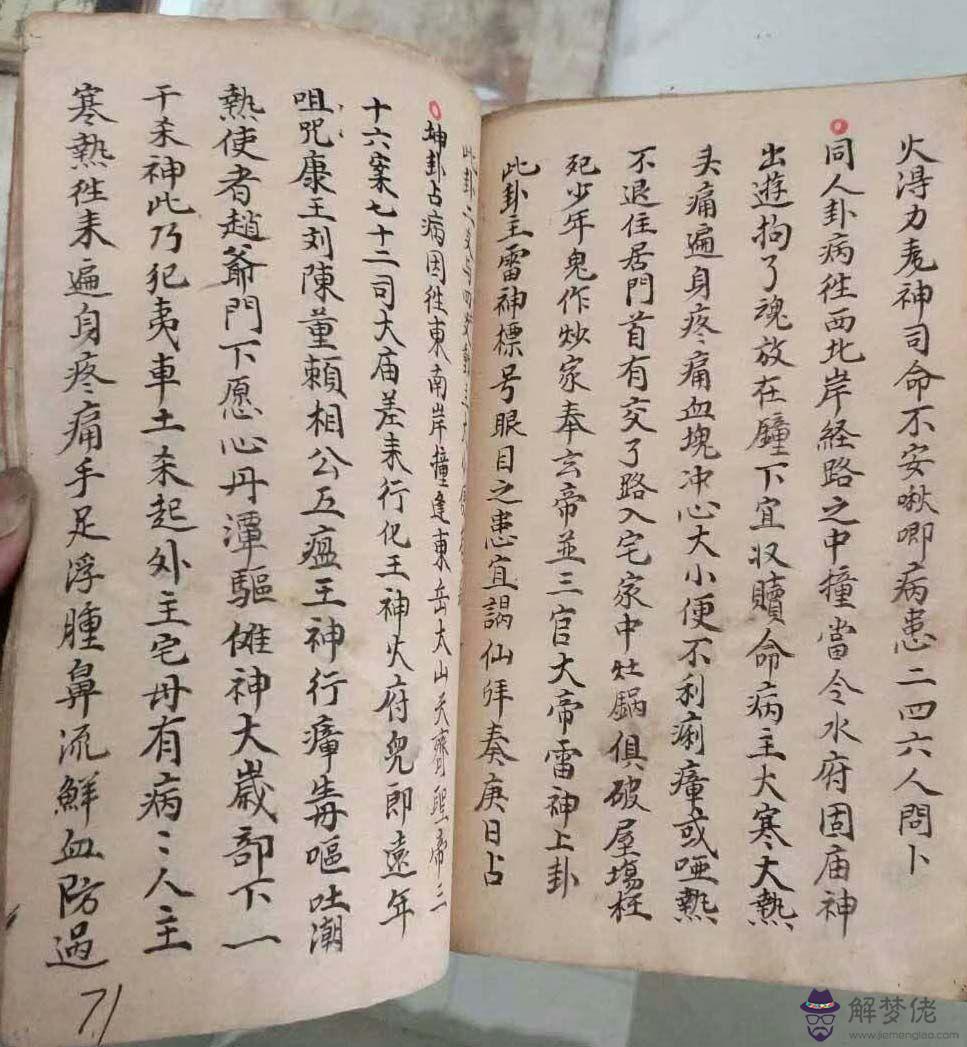 火得力灶神司命不安啾唧病患二四六人問卜
同人卦病往西北岸経路之中撞當令水府固庙神
出遊拘了魂放在臺下宜収贖命病主大寒大熱
头痛遍身疼痛血塊冲心大小便不利痢瘴或哑熱
不退住居門首有交了路入宅家中灶鍋俱破屋塲枉
死少年鬼作炒家奉玄帝並三官大帝雷神上卦
此卦主雷神標号眼目之患宜謁仙拜奏庚日占
此卦
坤卦占病因往東南岸撞逢東岳大山天齊聖帝三
十六案七十二司大庙差来行化王神火府兜即遠年
咀咒康王刘陳董賴相公五瘟王神行瘴毒嘔吐潮
熱使者趙爺門下愿心丹潭驅傩神大歲部下一
干杀神此乃犯夷車土杀起外主宅母有病〻人主
寒熱往来遍身疼痛手足浮腫鼻流鮮血防過
71
解梦佬
www.jiemenglao.com